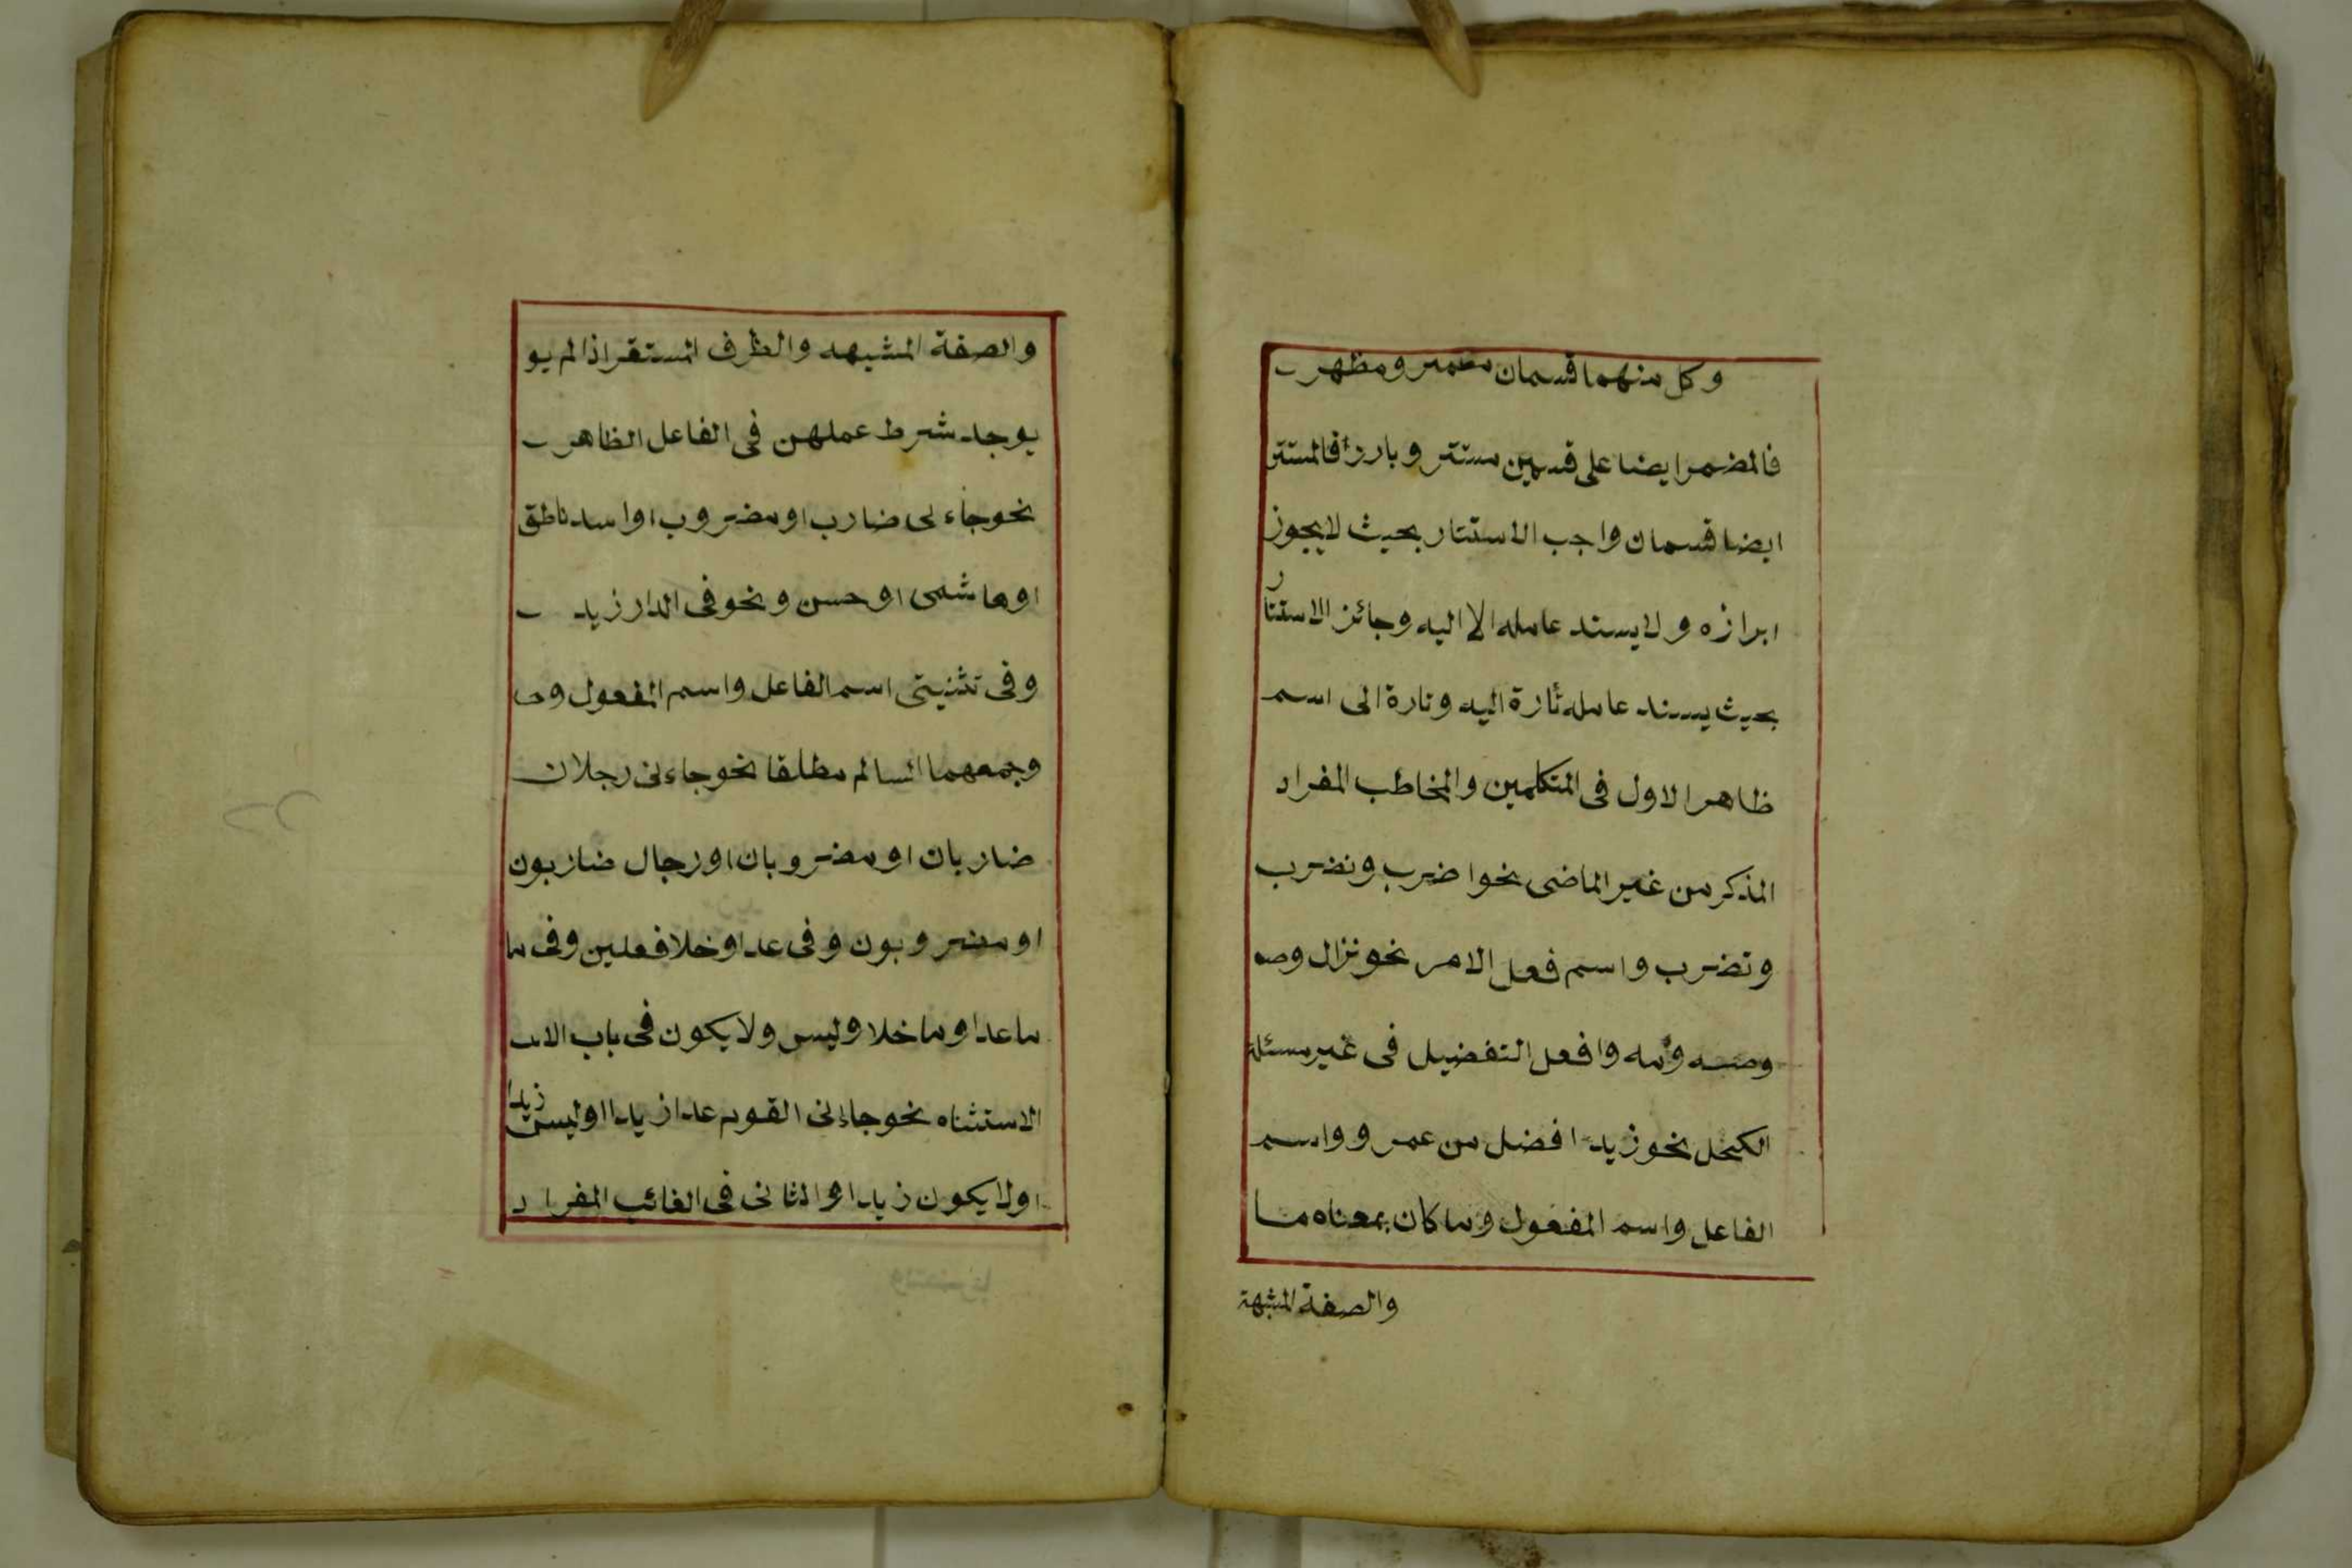 وكل منهما قسمان مضمر ومظهر
فالمضمر ايضا على قسمين مستتر وبارز فالمستتر
ايضا قسمان واجب الاستتار بحيث لا يجوز
ابرازه ولا يسند عامله الا اليه وجائز الاستتار
بحيث يسند عامله تارة اليه وتارة الى اسم
ظاهر الاول فى المتكلمين والمخاطب المفرد
المذكر من غير الماضى نحو اضرب ونضرب
وتضرب واسم فعل الامر نحو نزال وصه
وصه ومه وافعل التفضيل فى غير مسئلة
الكحل نحو زيد افضل من عمرو واسم
الفاعل واسم المفعول وما كان بمعناه مـا
والصفة المشبهة
والصفة المشبهه والظرف المستقر اذا لم يو
يوجد شرط عملهن فى الفاعل الظاهر
نحو جاء لى ضارب او مضروب او اسد ناطق
او هاشمى او حسن ونحو فى الدار زيد
وفى تثنيتى اسم الفاعل واسم المفعول وجـ
وجمعهما السالم مطلقا نحو جاءنى رجلان
ضاربان او مضروبان او رجال ضاربون
او مضروبون وفى عدا وخلا فعلين وفى ما
ما عدا وما خلا وليس ولا يكون فى باب الاسـ
الاستثناء نحو جاءنى القوم عدا زيدا او ليس زيدا
او لا يكون زيدا والثانى فى الغائب المفرد